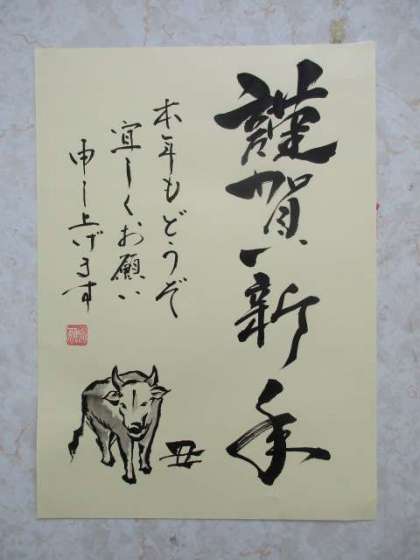 謹賀新年
本年もどうぞ
宜しくお願い
申し上げます
丑